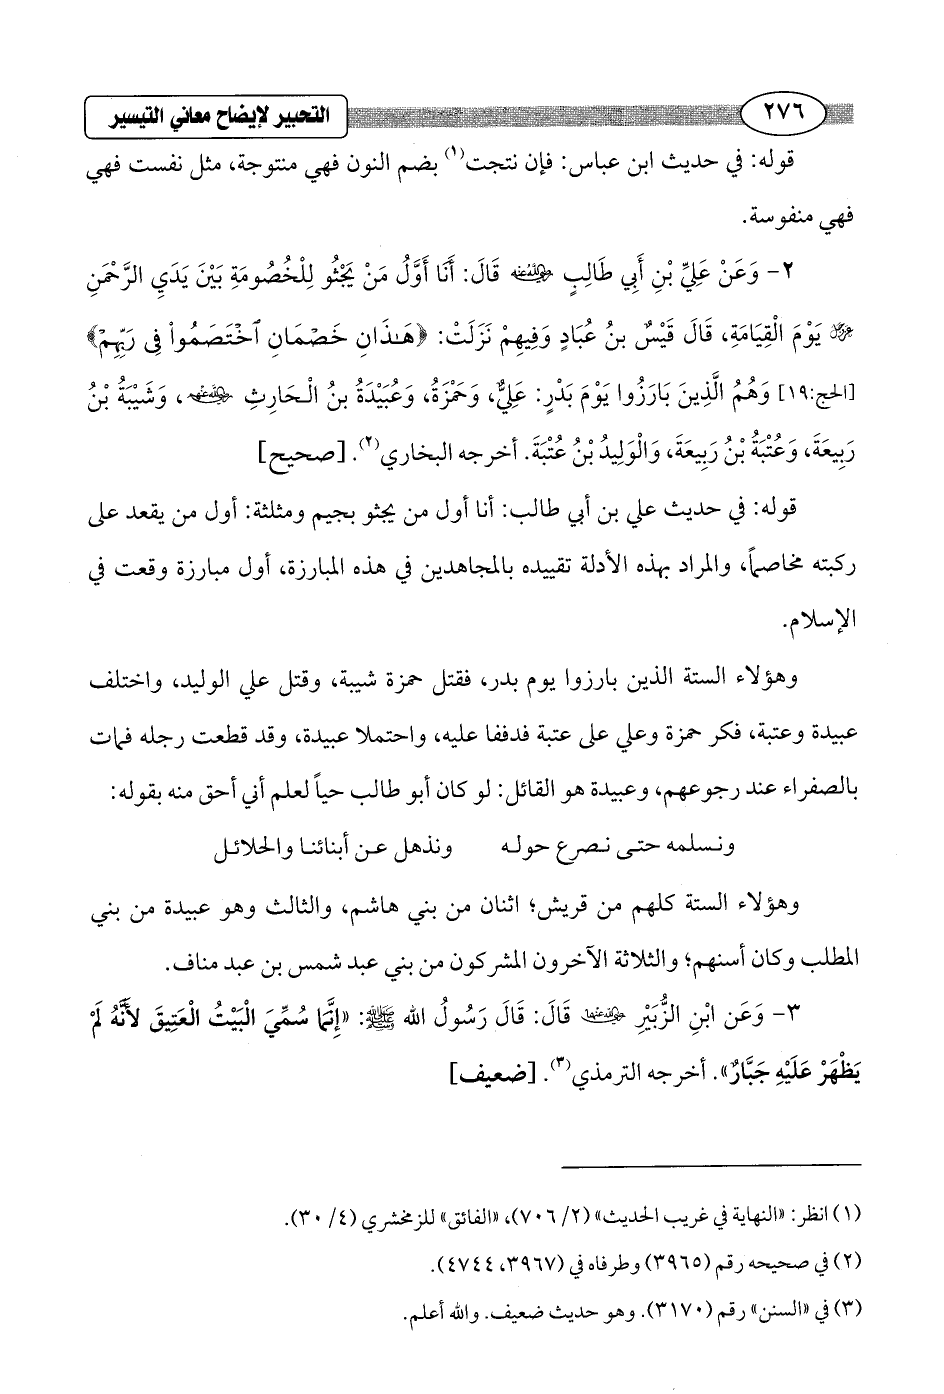 ٢٧٦ التحبير لإيضاح معاني التيسير
قوله: في حديث ابن عباس: فإن نتجت(١) بضم النون فهي منتوجة، مثل نفست فهي
فهي منفوسة.
٢- وَعَنْ عَلِيِّ بْنِ أَبِي طَالِبٍ رضي الله عنه قَالَ: أَنَا أَوَّلُ مَنْ يَجْثُو لِلْخُصُومَةِ بَيْنَ يَدَيِ الرَّحْمَنِ
عز وجل يَوْمَ الْقِيَامَةِ، قَالَ قَيْسٌ بنُ عُبَادٍ وَفِيهِمْ نَزَلَتْ: ﴿هَـٰذَانِ خَصْمَانِ ٱخْتَصَمُوا۟ فِى رَبِّهِمْ﴾
[الحج:١٩] وَهُمُ الَّذِينَ بَارَزُوا يَوْمَ بَدْرٍ: عَلِيٌّ، وَحَمْزَةُ، وَعُبَيْدَةُ بنُ الْحَارِثِ رضي الله عنهم، وَشَيْبَةُ بْنُ
رَبِيعَةَ، وَعُتْبَةُ بْنُ رَبِيعَةَ، وَالْوَلِيدُ بْنُ عُتْبَةَ. أخرجه البخاري(٢). [صحيح]
قوله: في حديث علي بن أبي طالب: أنا أول من يجثو بجيم ومثلثة: أول من يقعد على
ركبته مخاصماً، والمراد بهذه الأدلة تقييده بالمجاهدين في هذه المبارزة، أول مبارزة وقعت في
الإسلام.
وهؤلاء الستة الذين بارزوا يوم بدر، فقتل حمزة شيبة، وقتل علي الوليد، واختلف
عبيدة وعتبة، فكر حمزة وعلي على عتبة فدففا عليه، واحتملا عبيدة، وقد قطعت رجله فمات
بالصفراء عند رجوعهم، وعبيدة هو القائل: لو كان أبو طالب حياً لعلم أني أحق منه بقوله:
ونسلمه حتى نصرع حوله ونذهل عن أبنائنا والحلائل
وهؤلاء الستة كلهم من قريش؛ اثنان من بني هاشم، والثالث وهو عبيدة من بني
المطلب وكان أسنهم؛ والثلاثة الآخرون المشركون من بني عبد شمس بن عبد مناف.
٣- وَعَن ابْنِ الزُّبَيْرِ رضي الله عنهما قَالَ: قَالَ رَسُولُ الله ﷺ: «إِنَّمَا سُمِّيَ الْبَيْتُ الْعَتِيقَ لأَنَّهُ لَمْ
يَظْهَرْ عَلَيْهِ جَبَّارٌ». أخرجه الترمذي(٣). [ضعيف]
(١) انظر: «النهاية في غريب الحديث» (٢/ ٧٠٦)، «الفائق» للزمخشري (٤/ ٣٠).
(٢) في صحيحه رقم (٣٩٦٥) وطرفاه في (٣٩٦٧، ٤٧٤٤).
(٣) في «السنن» رقم (٣١٧٠). وهو حديث ضعيف. والله أعلم.